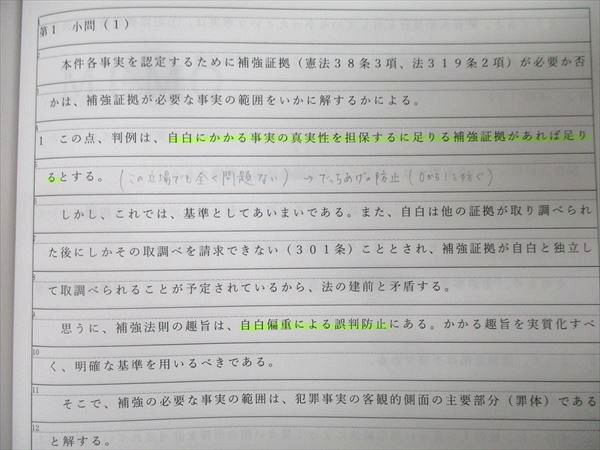 第1 小問(1)
本件各事実を認定するために補強証拠(憲法38条3項、法319条2項)が必要か否
かは、補強証拠が必要な事実の範囲をいかに解するかによる。
1 この点、判例は、自白にかかる事実の真実性を担保するに足りる補強証拠があれば足り
るとする。(この立場でも全く問題ない)→でっちあげの防止(0から1を防ぐ)
しかし、これでは、基準としてあいまいである。また、自白は他の証拠が取り調べられ
た後にしかその取調べを請求できない(301条)こととされ、補強証拠が自白と独立し
て取調べられることが予定されているから、法の建前と矛盾する。
思うに、補強法則の趣旨は、自白偏重による誤判防止にある。かかる趣旨を実質化すべ
く、明確な基準を用いるべきである。
そこで、補強の必要な事実の範囲は、犯罪事実の客観的側面の主要部分(罪体)である
と解する。